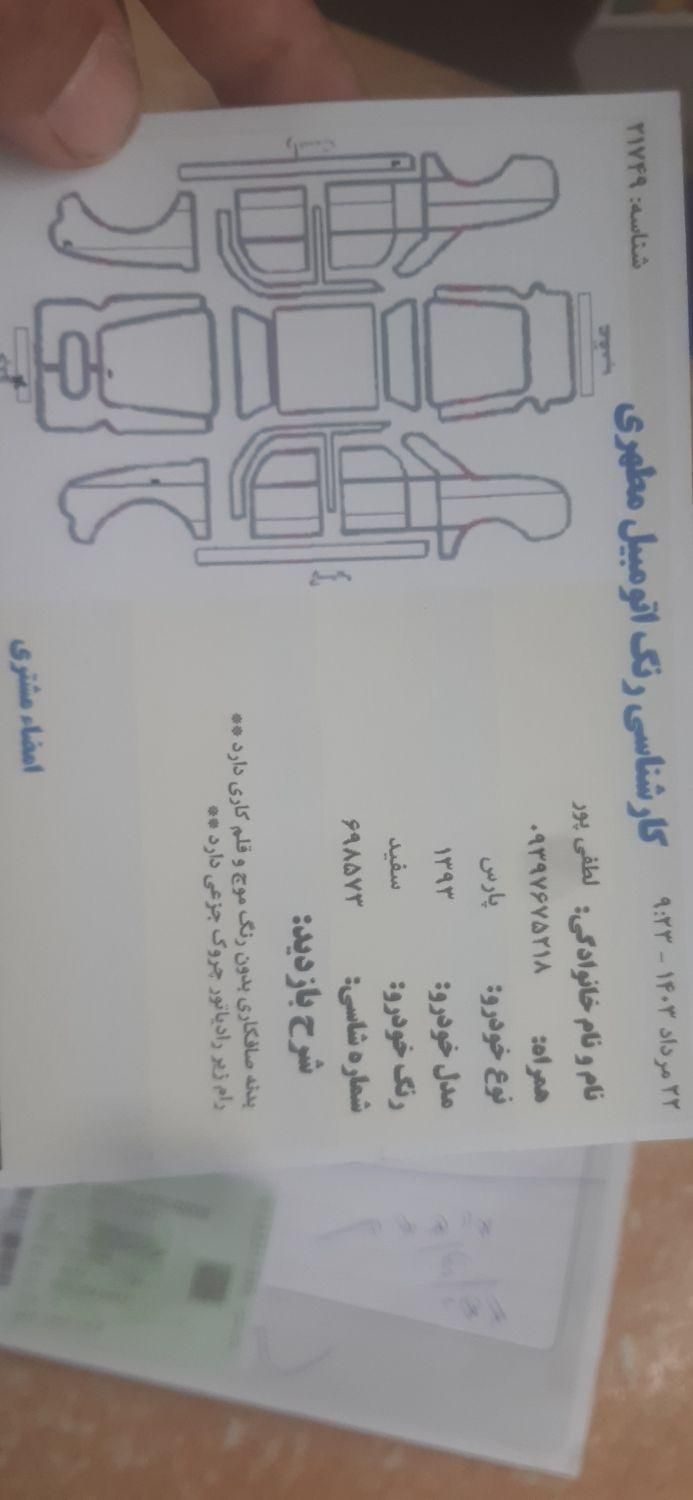 ۲۲ مرداد ۱۴۰۳ - ۹:۲۳
کارشناسی رنگ اتومبیل مطهری
شناسه: ۲۱۷۴۹
نام و نام خانوادگی: لطفی پور
همراه: ۰۹۳۹۷۶۷۵۲۱۸
نوع خودرو: پارس
مدل خودرو: ۱۳۹۳
رنگ خودرو: سفید
شماره شاسی: ۶۹۸۵۷۳
شرح بازدید:
بدنه صافکاری بدون رنگ موج و قلم کاری دارد **
رام زیر رادیاتور چروک جزعی دارد **
امضاء مشتری